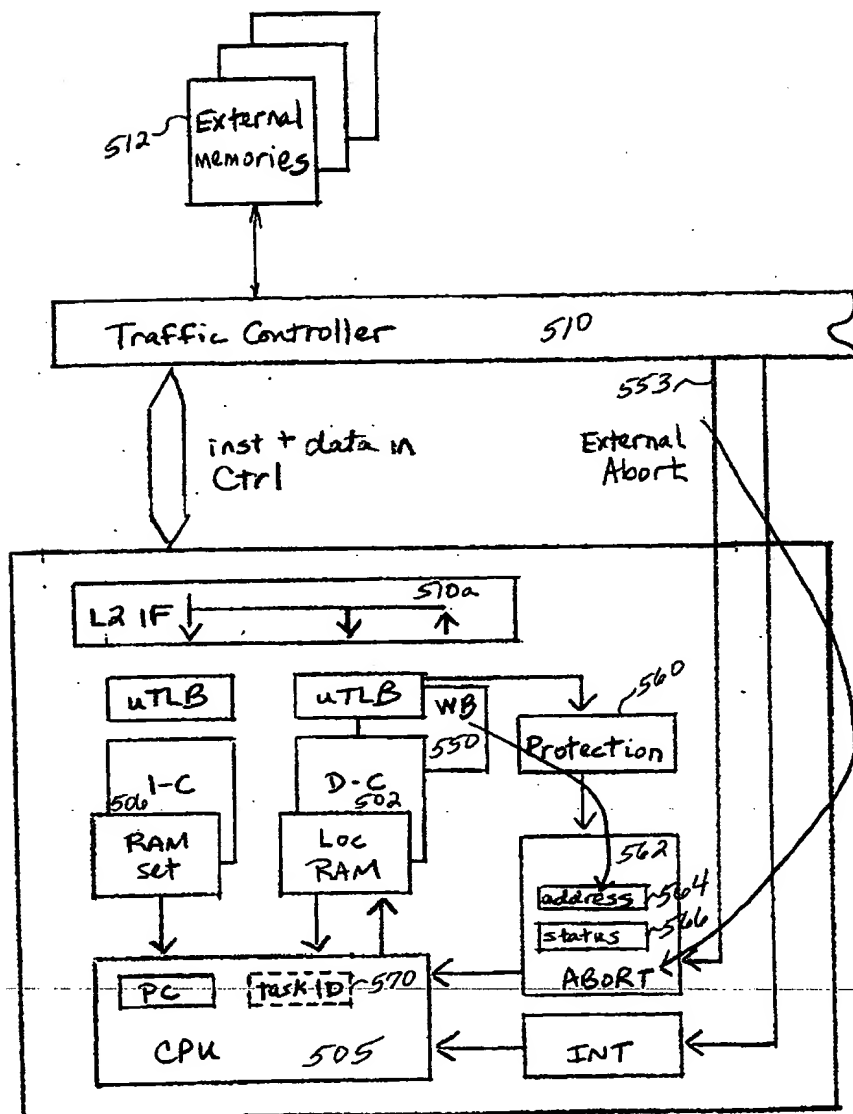 512
External
memories
Traffic Controller 510
553
inst + data in
Ctrl
External
Abort
L2 IF
510a
uTLB
uTLB
WB
550
560
Protection
I-C
506
D-C
502
RAM
set
Loc
RAM
562
address
564
status
566
ABORT
PC
task ID
570
CPU 505
INT